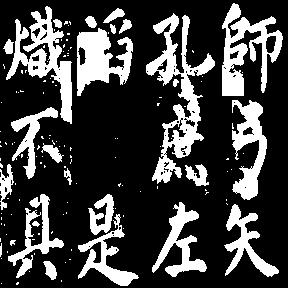 師弓矢
孔庶左
是
熾不具